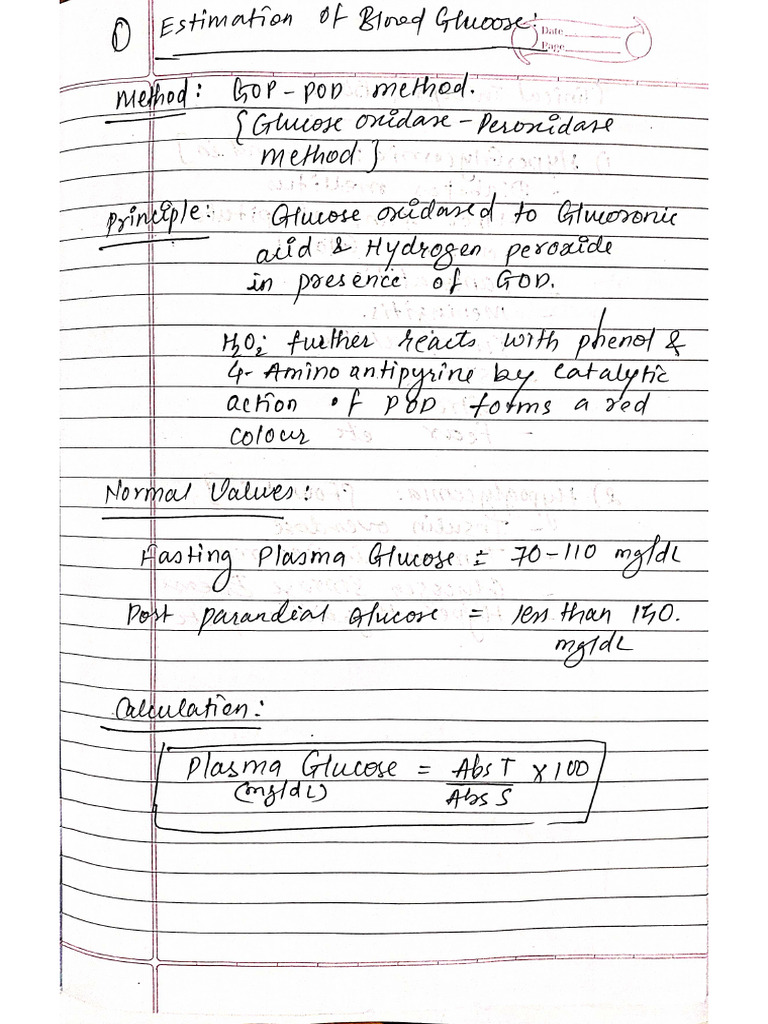 ① Estimation of Blood Glucose:
Date
Page
Method: GOP-POD method.
{Glucose oxidase - Peroxidase
method}
Principle: Glucose oxidased to Glucoronic
acid & Hydrogen peroxide
in presence of GOD.
H₂O₂ further reacts with phenol &
4-Amino antipyrine by catalytic
action of POD forms a red
colour
Normal Values:
Fasting Plasma Glucose = 70-110 mg/dL
Post parandial Glucose = less than 140.
mg/dL
Calculation:
Plasma Glucose = Abs T × 100
(mg/dL) Abs S